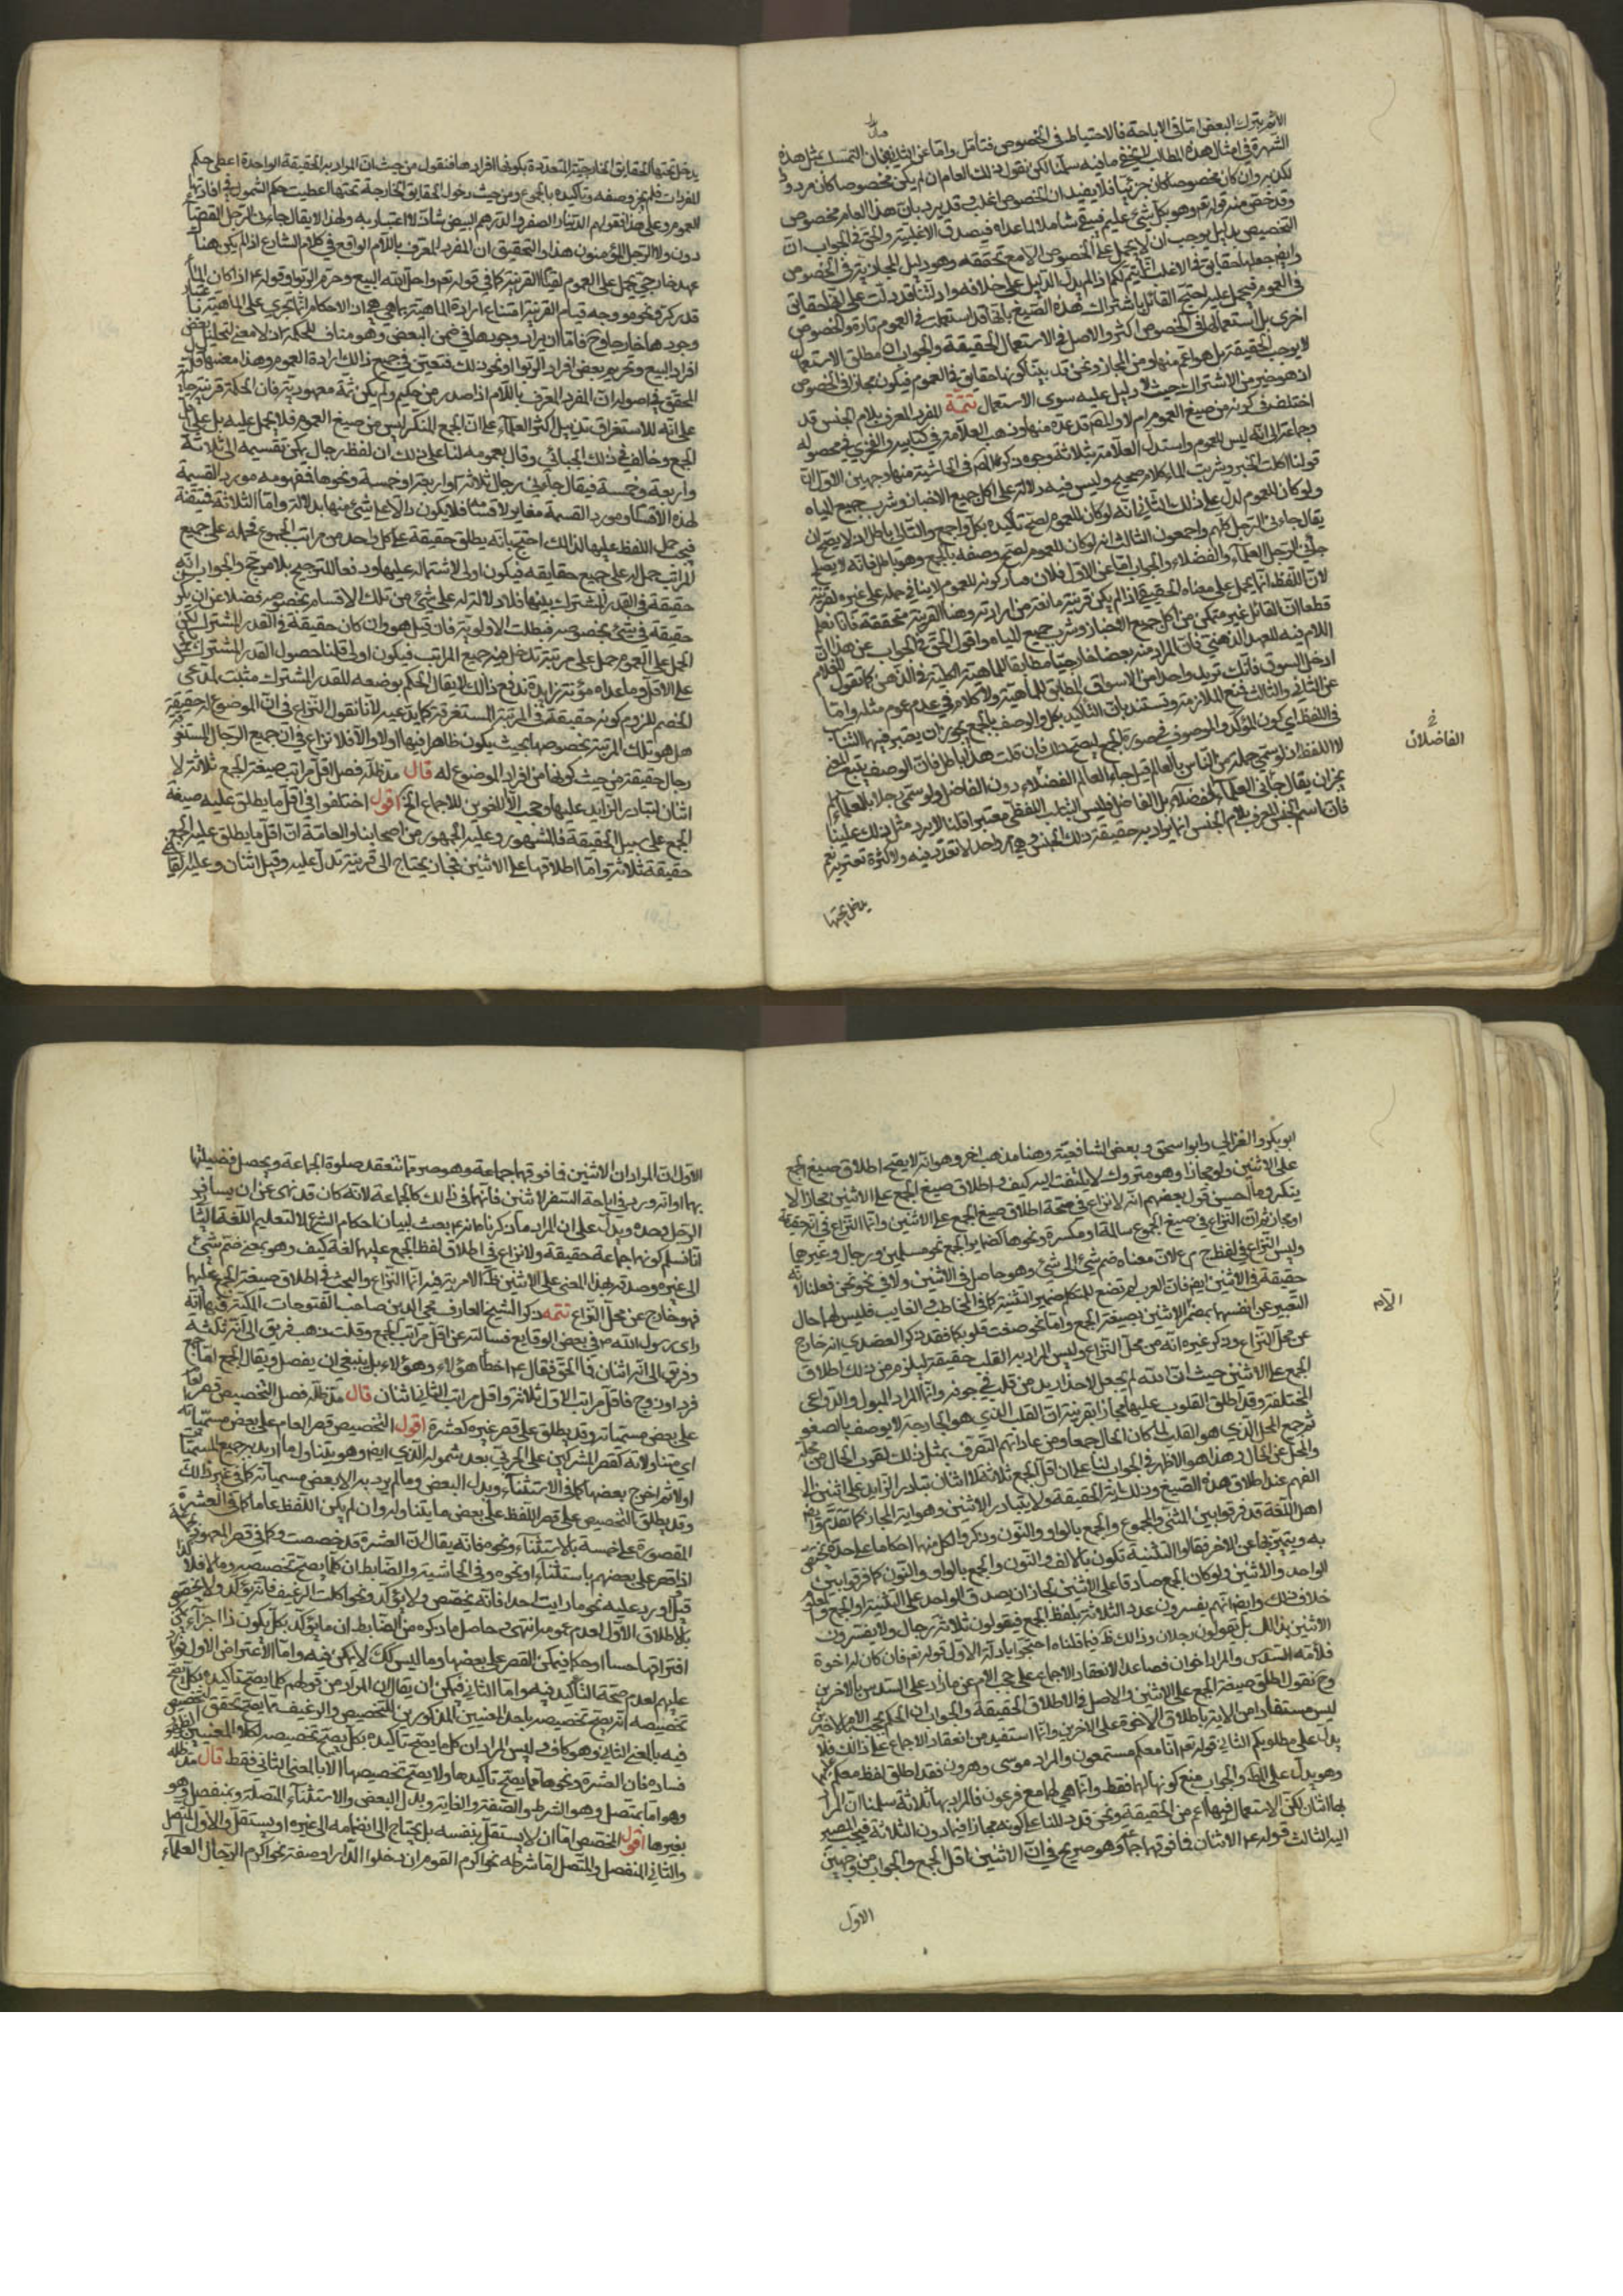 الاثم بترك البعض اما في الاباحة فالاحتياط في الخصوص فتأمل واما عن الثاني فبان التمسك بمثل هذه
الشهرة في امثال هذه المطالب لا يخفى ما فيه سلمنا لكن نقول ذلك العام ان لم يكن مخصوصا كان مردودا
لكن وان كان مخصوصا كان جزئيا فلا يفيد ان الخصوص اغلب
وقد خص منه قوله تعالى وهو بكل شيء عليم فيبقى شاملا لما عداه فيصدق الاغلبية والحق في الجواب ان
التخصيص بدليل يوجب ان لا يحمل على الخصوص الا مع تحققه وهو دليل المجازية في الخصوص
في العموم فيحمل عليه احتج القائل باشتراك هذه الصيغ بانها قد استعملت في العموم تارة وفي الخصوص
اخرى بل استعمالها في الخصوص اكثر والاصل في الاستعمال الحقيقة والجواب ان مطلق الاستعمال
لا يوجب الحقيقة بل هو اعم منها ومن المجاز ونحن قد بينا كونها حقايق في العموم فيكون مجازا في الخصوص
اذ هو خير من الاشتراك حيث لا دليل عليه سوى الاستعمال تتمة المفرد المعرف بلام الجنس قد
اختلف في كونه من صيغ العموم ام لا والمصنف عده منها وذهب العلامة في كتابيه والفخري في محصوله
وجماعة الى انه ليس للعموم واستدل العلامة بثلاثة وجوه ذكر المصنف في الحاشية منها وجهين الاول ان
قولنا اكلت الخبز وشربت الماء كلام صحيح وليس فيه دلالة على اكل جميع الاخباز وشرب جميع المياه
ولو كان للعموم لدل على ذلك الثاني انه لو كان للعموم لصح تأكيده بكل واجمع والتالي باطل اذ لا يصح ان
يقال جاءني الرجل كلهم واجمعون الثالث انه لو كان للعموم لصح وصفه بالجمع وهو باطل فانه لا يصح
جاءني الرجل العلماء والفضلاء والجواب اما عن الاول فلان مدار كونه للعموم لا ينافي حمله على غيره لقرينة
لان اللفظ انما يحمل على معناه الحقيقي اذا لم يكن قرينة مانعة من ارادته وهنا القرينة متحققة فانا نعلم
قطعا ان القائل غير متمكن من اكل جميع الاخباز وشرب جميع المياه واقول الحق في الجواب عن هذا ان
اللام فيه للعهد الذهني فان المراد منه بعضا خارجيا مطابقا للماهية الكلية في الذهن كما تقول للغلام
ادخل السوق فانك تريد واحدا من الاسواق المطابق للماهية ولا كلام في عدم عموم مثله واما
عن الثاني والثالث فنمنع الملازمة ونستند بان التأكيد بكل والوصف بالجمع يجوز ان يعتبر فيهما التناسب
في اللفظ اي كون المؤكد والموصوف في صورة الجمع ليصح ذلك فان قلت هذا باطل فان الوصف يتبع المعنى
لا اللفظ اذ لو سمي جماعة من الناس بالعالم قيل جاء العالم الفضلاء دون الفاضل ولو سمي رجلا بالعلماء لم
يجز ان يقال جاءني العلماء الفضلاء بل الفاضل فليس التناسب اللفظي معتبرا قلنا لا يرد مثل ذلك علينا
فان اسم الجنس المعرف بلام الجنس انما يراد به حقيقة ذلك الجنس وهي امر واحد لا تعدد فيه ولا كثرة تعتريه نعم
يدخل تحتها
الفاضلان
يدخل تحتها الحقايق الخارجية المتعددة بكونها افرادها فنقول من حيث ان المراد به الحقيقة الواحدة اعطي حكم
المفردات فلم يجز وصفه وتأكيده بالجموع ومن حيث دخول الحقايق الخارجة تحتها اعطيت حكم الشمول في افادتها
العموم وعلى هذا فقولهم الدينار الصفر والدرهم البيض شاذ لا اعتبار به ولهذا لا يقال جاءني الرجل القضاة
دون ولا الرجل المؤمنون هذا والتحقيق ان المفرد المعرف باللام الواقع في كلام الشارع اذا لم يكن هنا
عهد خارجي يحمل على العموم لقيام القرينة كما في قوله تعالى واحل الله البيع وحرم الربوا وقوله ع اذا كان الماء
قدر كر ونحو ووجه قيام القرينة امتناع ارادة الماهية بما هي هي اذ الاحكام انما تجري على الماهية باعتبار
وجودها خارجا وح فاما ان يراد وجودها في ضمن البعض وهو مناف للحكمة اذ لا معنى لتحليل بعض
افراد البيع وتحريم بعض افراد الربوا ونحو ذلك فتعين في جميع ذلك ارادة العموم وهذا معنى ما قال
المحقق في اصوله ان المفرد المعرف باللام اذا صدر من حكيم ولم يكن ثمة معهود فان الحكمة قرينة حالية
على انه للاستغراق تذييل اكثر العلماء على ان الجمع المنكر ليس من صيغ العموم فلا يحمل عليه بل على اقل
الجمع وخالف في ذلك الجبائي وقال بعمومه لنا على ذلك ان لفظ رجال يمكن تقسيمه الى ثلاثة
واربعة وخمسة فيقال جاءني رجال ثلاثة او اربعة او خمسة ونحوها فمفهومه مورد القسمة
لهذه الاقسام ومورد القسمة مغاير لاقسامه فلا يكون دالا على شيء منها بدلالة واما الثلاثة فتيقنة
فيجب حمل اللفظ عليها لذلك احتج بانه يطلق حقيقة على كل واحد من مراتب الجموع فحمله على جميع
المراتب حمل له على جميع حقايقه فيكون اولى لاشتماله عليها ودفعا للترجيح بلا مرجح والجواب انه
حقيقة في القدر المشترك بينها فلا دلالة له على شيء من تلك الاقسام بخصوصه فضلا عن ان يكون
حقيقة في شيء بخصوصه فبطلت الاولوية فان قيل هو وان كان حقيقة في القدر المشترك لكن
الحمل على العموم حمل على مرتبة تدخل فيه جميع المراتب فيكون اولى قلنا حصول القدر المشترك
على الاقل وما عداه مؤنة زايدة تدفع ذلك لا يقال الحكم بوضعه للقدر المشترك مثبت لمدعى
الخصم للزوم كونه حقيقة في المرتبة المستغرقة كما يدعيه لانا نقول النزاع في ان الموضوع له حقيقة
هل هو تلك المرتبة بخصوصها بحيث يكون ظاهرا فيها اولا والا فلا نزاع في ان جميع الرجال
رجال حقيقة من حيث كونها من افراد الموضوع له قال مد ظله فصل اقل مراتب صيغة الجمع ثلاثة لا
اثنان لتبادر الزايد عليهما وحجب الاخوين للاجماع الخ اقول اختلفوا في اقل ما يطلق عليه صيغة
الجمع على سبيل الحقيقة فالمشهور وعليه الجمهور من اصحابنا والعامة ان اقل ما يطلق عليه الجمع
حقيقة ثلاثة واما اطلاقها على الاثنين فمجاز يحتاج الى قرينة تدل عليه وقيل اثنان وعليه القاضي
ابو بكر والغزالي وابو اسحق وبعض الشافعية وهنا مذهب اخر وهو انه لا يصح اطلاق صيغ الجمع
على الاثنين ولو مجازا وهو متروك لا يلتفت اليه كيف واطلاق صيغ الجمع على الاثنين مجازا لا
ينكر وما احسن قول بعضهم انه لا نزاع في صحة اطلاق صيغ الجمع على الاثنين وانما النزاع في انه حقيقة
او مجاز ثم ان النزاع في صيغ الجموع سالمة او مكسرة ونحوها كضماير الجمع نحو مسلمين ورجال وغيرها
وليس النزاع في لفظ ج م ع لان معناه ضم شيء الى شيء وهو حاصل في الاثنين ولا في نحو نحن فعلنا لانه
حقيقة في الاثنين ايضا فان العرب لم تضع للمتكلم ضمير التثنية كما في المخاطب والغايب فليس لهما حال
التعبير عن انفسهما بضمير الاثنين بصيغة الجمع واما نحو صغت قلوبكما فقد ذكر العضدي انه خارج
عن محل النزاع وذكر غيره انه من محل النزاع وليس المراد به القلب حقيقة ليلزم من ذلك اطلاق
الجمع على الاثنين حيث ان الله لم يجعل لاحد ازيد من قلب في جوفه وانما المراد الميول والدواعي
المختلفة وقد اطلق القلوب عليها مجازا بقرينة ان القلب الذي هو الجارحة لا يوصف بالصغو
ثم جمع المحل الذي هو القلب لما كان الحال جمعا ومن عاداتهم التصرف بمثل ذلك لقرب الحال من محله
والمحل عن الحال وهذا هو الاظهر في الجواب لنا على ان اقل الجمع ثلاثة لا اثنان تبادر الزايد على اثنين الى
الفهم عند اطلاق هذه الصيغ وذلك آية الحقيقة ولا يتبادر الاثنين وهو آية المجاز كما تقدم وايضا
اهل اللغة قد فرقوا بين المثنى والمجموع والجمع بالواو والنون وذكروا لكل منها احكاما على حدة تختص
به ويتميز بها عن الاخر فقالوا التثنية تكون بالالف والنون والجمع بالواو والنون كما فرقوا بين
الواحد والاثنين ولو كان الجمع صادقا على الاثنين لجاز ان يصدق الواحد على التثنية او الجمع والمعلوم
خلاف ذلك وايضا انهم يفسرون عدد الثلاثة بلفظ الجمع فيقولون ثلاثة رجال ولا يفسرون
الاثنين بذلك بل يقولون رجلان وذلك ظ فيما قلناه احتجوا بادلة الاول قوله تعالى فان كان له اخوة
فلامه السدس والمراد اخوان فصاعدا لانعقاد الاجماع على حجب الام عن ما زاد على السدس بالاخوين
وح نقول اطلق صيغة الجمع على الاثنين والاصل في الاطلاق الحقيقة والجواب ان الحكم بحجب الام بالاخوين
ليس مستفادا من الاية باطلاق الاخوة على الاخوين وانما استفيد من انعقاد الاجماع على ذلك فلا
يدل على مطلوبكم الثاني قوله تعالى انا معكم مستمعون والمراد موسى وهرون فقد اطلق لفظ معكم عليهما
وهو يدل على المط والجواب منع كونها لهما فقط وانما هي لهما مع فرعون فالمراد بها ثلاثة سلمنا ان المراد
بها اثنان لكن الاستعمال فيهما اعم من الحقيقة ونحن قد دللنا على كونه مجازا فيما دون الثلاثة فيجب المصير
اليه الثالث قوله ع الاثنان فما فوقهما جماعة وهو صريح في ان الاثنين اقل الجمع والجواب من وجهين
الاول
الام
الاول ان المراد ان الاثنين فما فوقهما جماعة وهو صريح فيما تنعقد صلوة الجماعة ويحصل فضيلتها
بهما او انه ورد في اباحة السفر لاثنين فانهما في ذلك كالجماعة لانه كان قد نهى عن ان يسافر
الرجل وحده ويدل على ان المراد ما ذكرناه انه ع بعث لبيان احكام الشرع لا لتعليم اللغة الثاني
انا نسلم كونهما جماعة حقيقة ولا نزاع في اطلاق لفظ الجمع عليهما لغة كيف وهو بمعنى ضم شيء
الى غيره وصدقه بهذا المعنى على الاثنين مما لا مرية فيه انما النزاع والبحث في اطلاق صيغة الجمع عليهما
فهو خارج عن محل النزاع تتمة ذكر الشيخ العارف محي الدين صاحب الفتوحات المكية فيها انه
راى رسول الله ص في بعض الوقايع فسألته عن اقل مراتب الجمع وقلت ذهب فريق الى انه ثلاثة
وفريق الى انه اثنان فما الحق فقال ع اخطأ هؤلاء وهؤلاء بل ينبغي ان يفصل ويقال الجمع اما جمع
فرد او زوج فاقل مراتب الاول ثلاثة واقل مراتب الثاني اثنان قال مد ظله فصل التخصيص قصر العام
على بعض مسمياته وقد يطلق على قصر غيره كعشرة اقول التخصيص قصر العام على بعض مسمياته
اي متناولاته كقصر المشركين على الحربي بعد شموله للذمي ايضا وهو يتناول ما اريد به جميع المسميات
اولا ثم اخرج بعضها كما في الاستثناء وبدل البعض وما لم يرد به الا بعض مسمياته كما في غير ذلك
وقد يطلق التخصيص على قصر اللفظ على بعض ما يتناوله وان لم يكن اللفظ عاما كما في العشرة
المقصورة على خمسة بالاستثناء ونحوه فانه يقال ان العشرة قد خصصت وكما في قصر
اذا قصر على بعضهم باستثناء او نحوه وفي الحاشية والضابط ان كلما يصح تأكيده يصح تخصيصه وما لا فلا
قيل اورد عليه نحو ما رايت احدا فانه يخصص ولا يؤكد ونحو اكلت الرغيف فانه يؤكد ولا يخصص
بالاطلاق الاول لعدم عمومه انتهى وحاصل ما ذكره من الضابط ان ما يؤكد بكل يكون ذا اجزاء يمكن
افتراقها حسا او حكما فيمكن القصر على بعضها وما ليس كذلك لا يمكن فيه واما الاعتراض الاول فوارد
عليهم لعدم صحة التأكيد فيه واما الثاني فيمكن ان يقال ان المراد من قولهم كلما يصح تأكيده بكل يصح
تخصيصه انه يصح تخصيصه باحد المعنيين المذكورين للتخصيص والرغيف مما يصح تحقق التخصيص
فيه بالمعنى الثاني وهو كاف وليس المراد ان كل ما يصح تأكيده بكل يصح تخصيصه بكلا المعنيين لظهور
فساده فان العشرة ونحوها مما يصح تأكيدها ولا يصح تخصيصها الا بالمعنى الثاني فقط قال مد ظله
وهو اما بمتصل وهو الشرط والصفة والغاية وبدل البعض والاستثناء المتصل او بمنفصل وهو
بغيرها اقول المخصص اما ان لا يستقل بنفسه بل يحتاج الى انضمامه الى غيره او يستقل والاول المتصل
والثاني المنفصل والمتصل اما شرط نحو اكرم القوم ان دخلوا الدار او صفة نحو اكرم الرجال العلماء